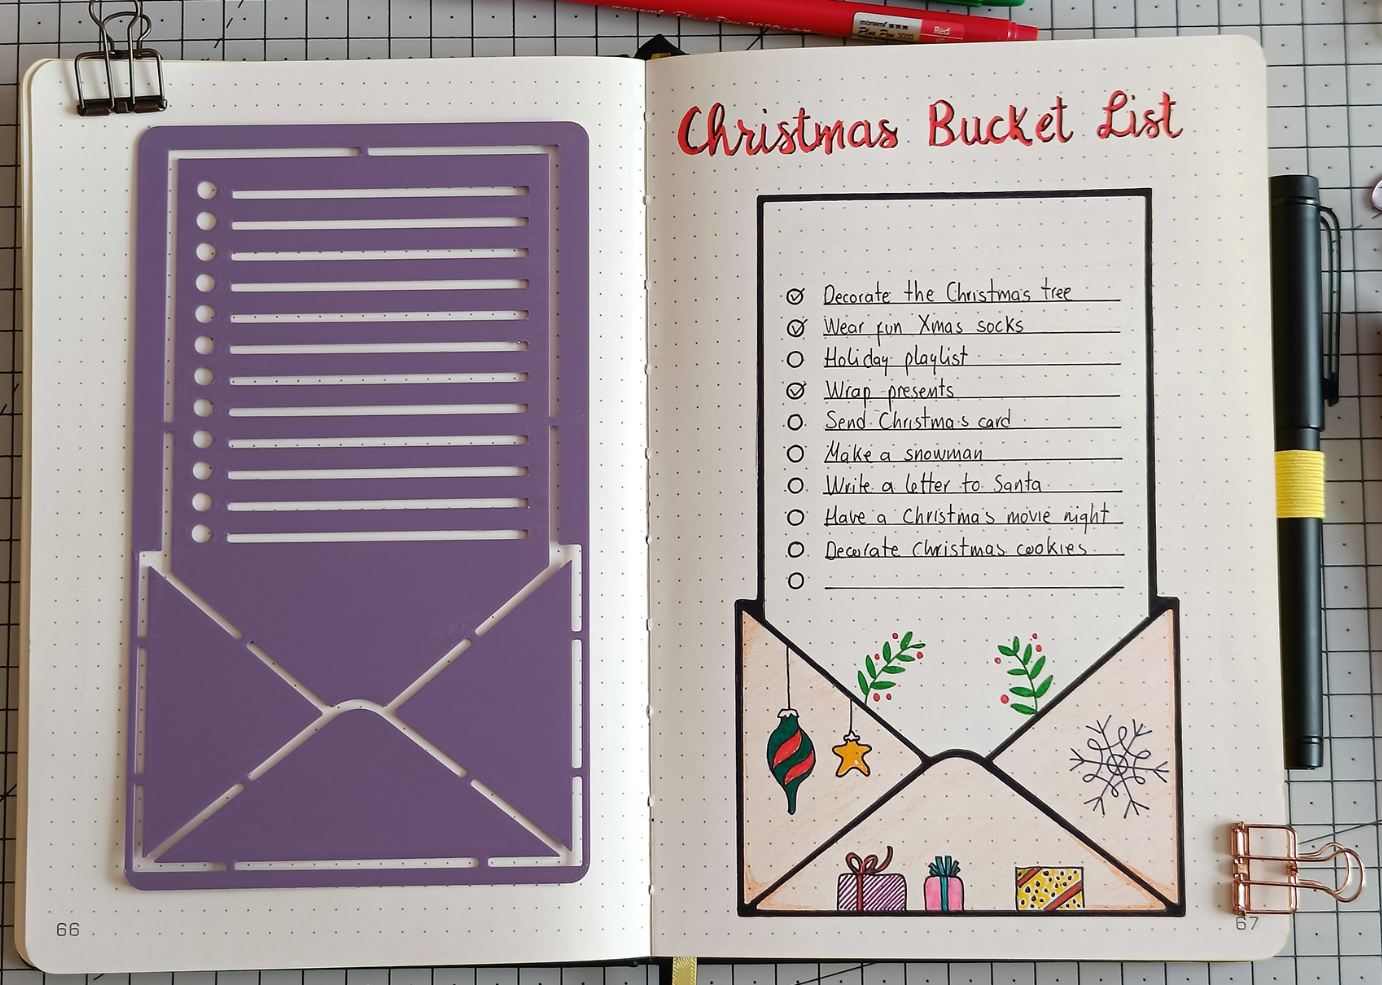 monami Plus Pen 3000
monami
Plus Pen 3000
Red
Christmas Bucket List
Decorate the Christmas tree
Wear fun Xmas socks
Holiday playlist
Wrap presents
Send Christmas card
Make a snowman
Write a letter to Santa
Have a Christmas movie night
Decorate Christmas cookies
66
67